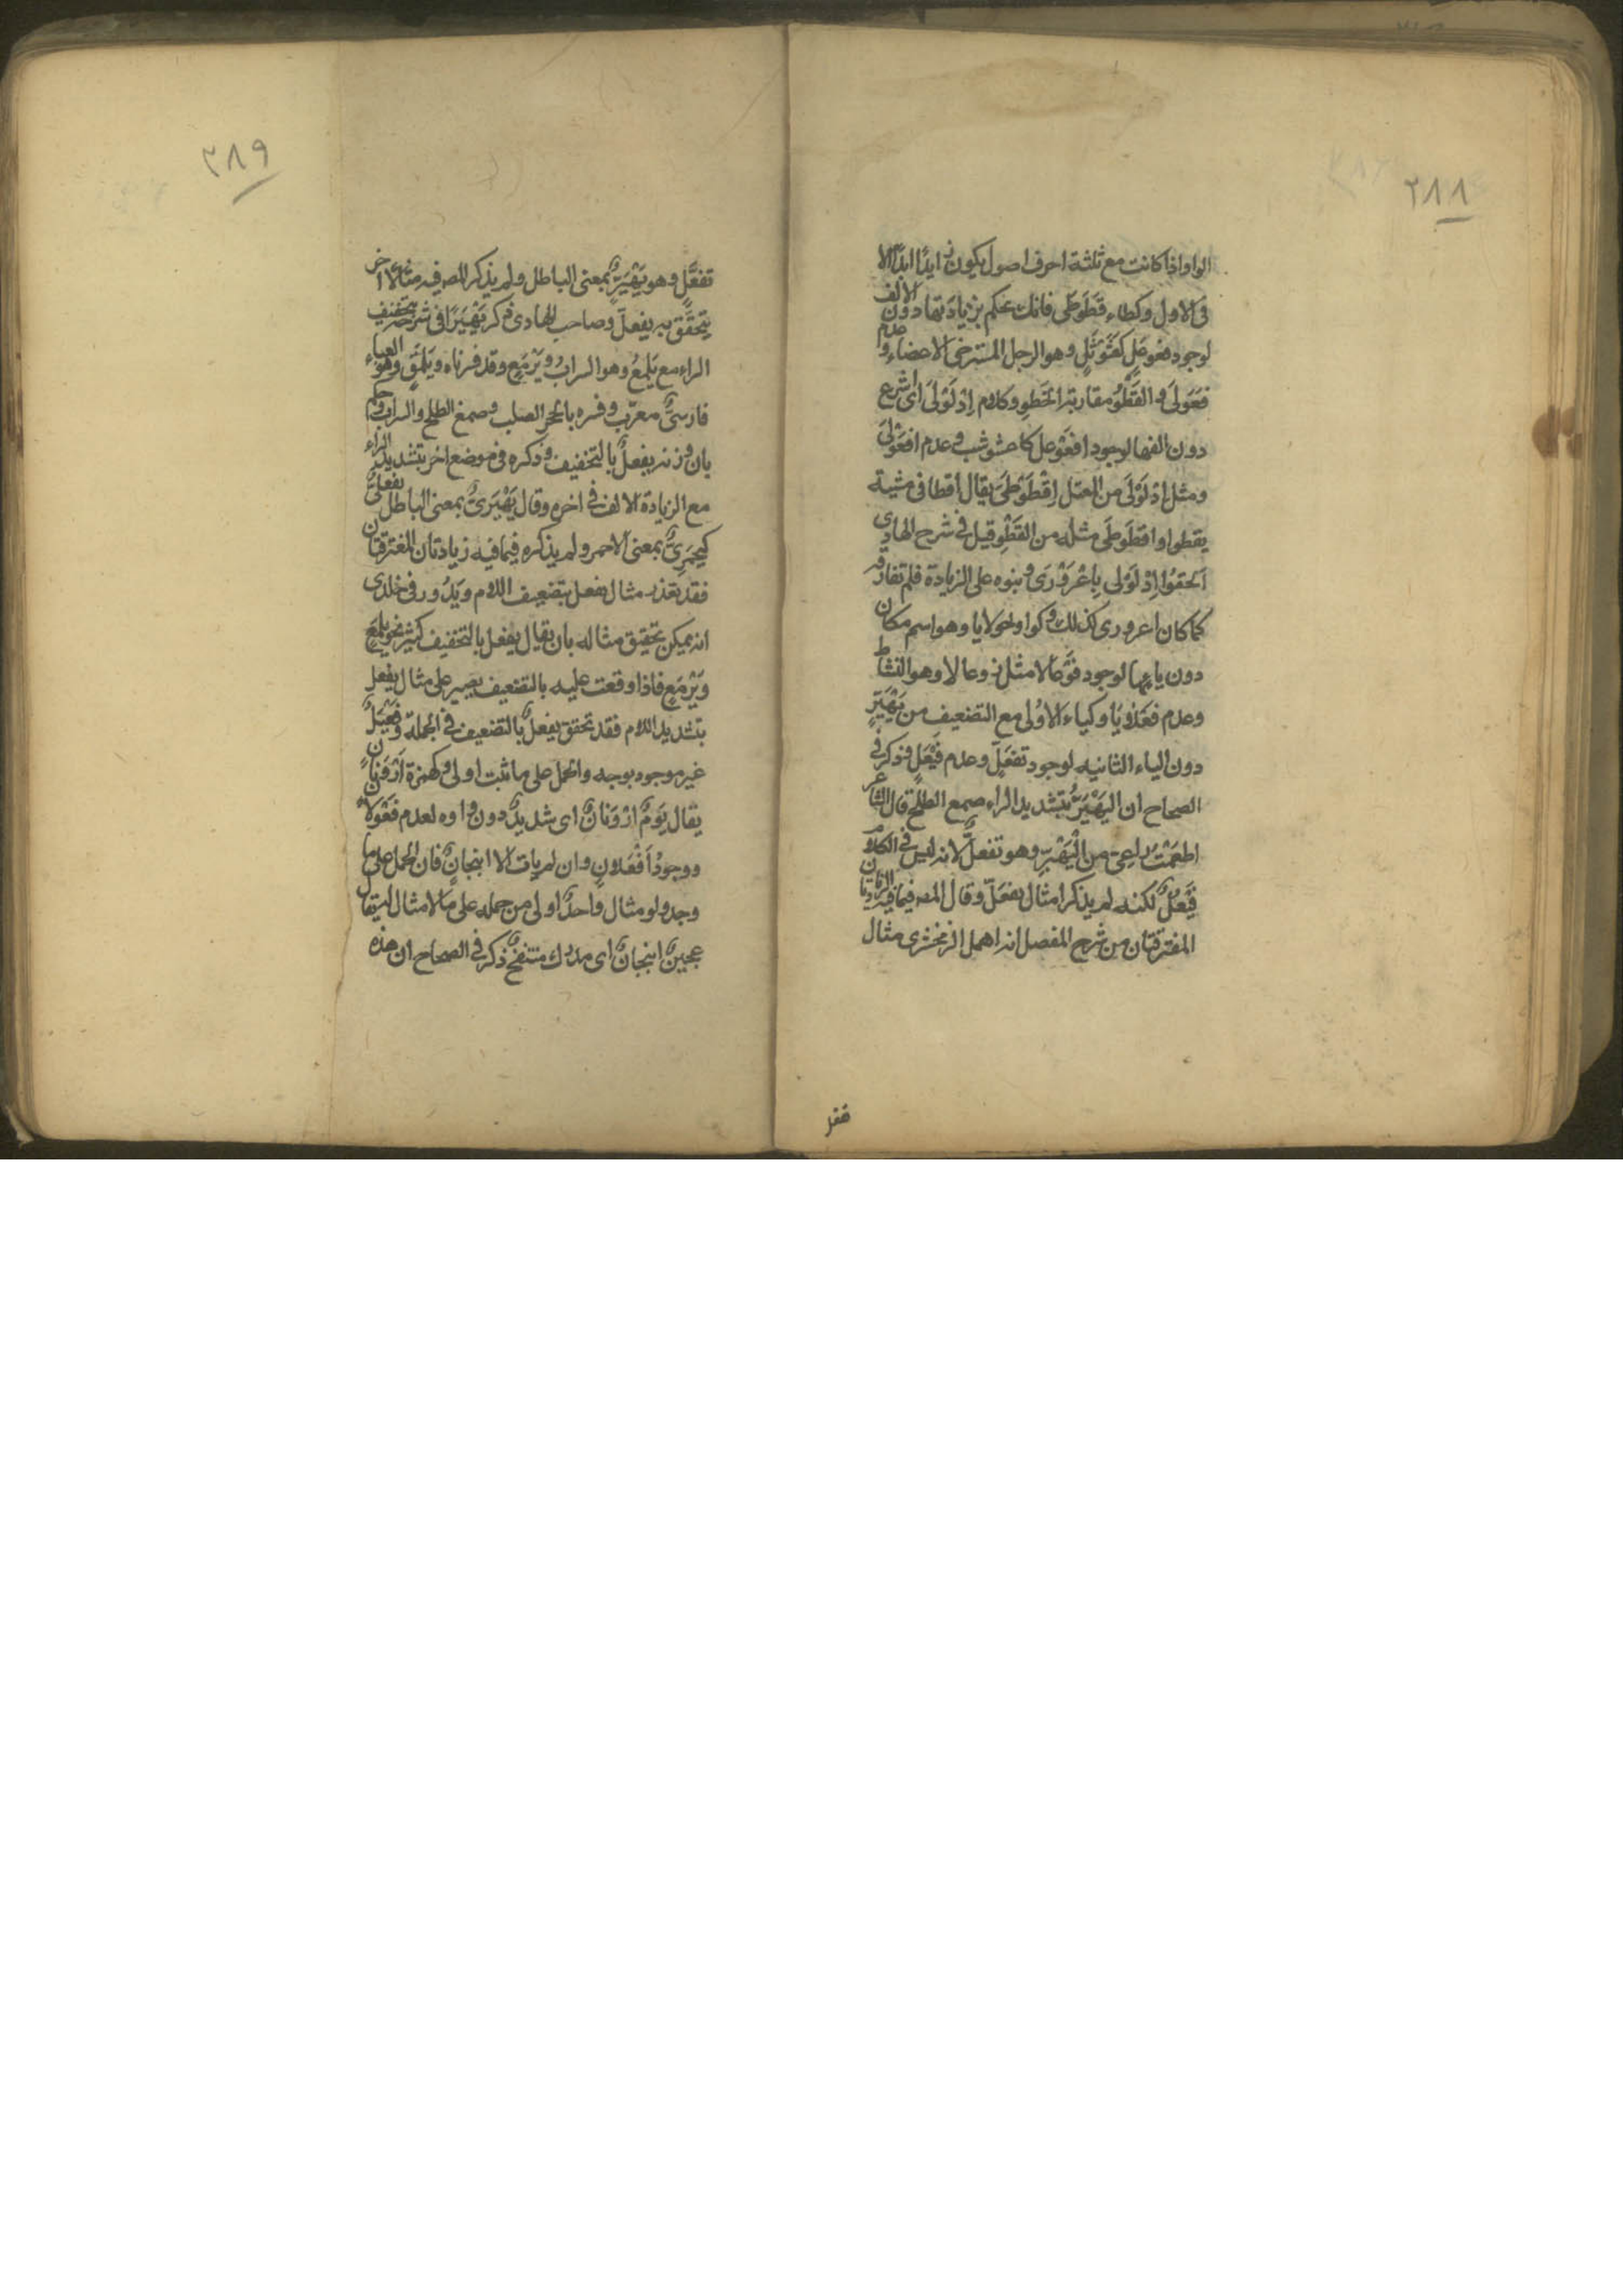 ٢٨٨
الواو اذا كانت مع ثلثة احرف اصول يكون زايدا ابدا الا
فى الاول وكطاء قَطَوطَى فانك تحكم بزيادتها دون الالف
لوجود فعوعل كعَثَوثَلٍ وهو الرجل المسترخى الاعضاء وعدم
فَعَولَى والقَطْوُ مقاربة الخَطو وكلام اِذْلَوْلَى اى اسرع
دون الفها لوجود افعَوعل كاعشوشب وعدم افعَوْلَى
ومثل اذلَوْلَى من المعتل اِقْطَوْطَى يقال اقطا فى مشية
يقطوا واقطَوطَى مثله من القَطْوِ قيل فى شرح الهادى
اَلحَقوُا اِذْلَوْلى بِاعْرَوْرَى وبنوه على الزيادة فلم تفارقه
كما كان اعرورى كذلك وكواو حَولايا وهو اسم مكان
دون يايها لوجود فَوعَالا مثل زوعالا وهو النشاط
وعدم فَعَلايا وكياء الاُولى مع التضعيف من يَهْيَرّ
دون الياء الثانيه لوجود تفعَلّ وعدم فَيْعَلّ وذكر فى
الصحاح ان اليَهْيَرَّ بتشديد الراء صمغ الطلح قال الشاعر
اطعَمْتُ راعِىَّ من اليَهْيَرِّ وهو تفعلّ لانه ليس فى الكلام
فَيْعَلّ لكنه لم يذكر امثال يفعَلّ وقال المصه فيما فيه الزيادتان
المفترقتان من شرح المفصل انه اهمل الزمخشرى مثال
تفعل
٣٨٩
تفعَّلٍ وهو يَهْيَرّ بمعنى الباطل ولم يذكر المصه فيه مثالا اخر
يتحقّق به يفعلّ وصاحب الهادى ذكر يَهْيَرًا فى شرحه بتخفيف
الراء مع يَلمعُ وهو السراب ويَرْمَعٍ وقد فسرناه ويَلمَقٍ وهو العباء
فارسىّ معرّب وفسره بالحجر الصلب وصمغ الطلح والسراب وحكم
بان وزنه يفعلٌ بالتخفيف وذكره فى موضع اخر بتشديد الراء
مع الزيادة الالف فى اخره وقال يَهْيَرىٌّ بمعنى الباطل يفعلىٌّ
كيحمرىٌّ بمعنى الاحمر ولم يذكره فيما فيه زيادتان المفترقتان
فقد تعذر مثال يفعل بتضعيف اللام ويَدُور فى خلدى
انه يمكن تحقيق مثاله بان يقال يفعل بالتخفيف كثير نحو يلمَع
ويَرْمَعٍ فاذا وقعت عليه بالتضعيف يصير على مثال يفعل
بتشديد اللام فقد تحقق يفعلّ بالتضعيف فى الجملة وفَعْيَلٌّ
غير موجود بوجه والحمل على ما ثبت اولى وكهمزة اَرْوَنانٍ
يقال يَومٌ ارْوَنانٌ اى شديدٌ دون واوه لعدم فَعْوَلانٍ
ووجودُ اَفْعَلان وان لم يات الا انبجان فان الحمل على ما
وجد ولو مثال واحدٌ اولى من حمله على ما لا مثال له يقال
عجينٌ انبجانٌ اى مدرك منتفخٌ ذكر فى الصحاح ان هذه